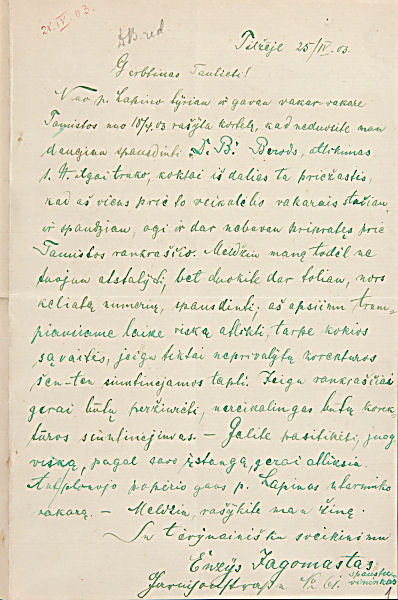 25/IV. 03.
D.B. red
Tilžėje 25/IV 03.
Gerbtinas Tautieti!
Nuo p. Lapino tyriau ir gavau vakar vakare
Tamistos nuo 18/4.03 rašytą kortelę, kad neduosite man
daugiau spausdinti „D. B." Berods, atlikimas
1. N. ilgai truko, koktai iš dalies ta priežastis,
kad aš vienas prie to veikalėlio vakarais stačiau
ir spaudžiau, ogi ir dar nebuvau pripratęs prie
Tamistos rankraščio. Meldžiu manę todėl ne
tuojau atstatyti, bet duokite dar toliau, nors
keliatą numerių, spausdinti; aš apsiimu trum-
piausiame laike viską atlikti, tarpe kokios
sąvaitės, jeigu tiktai neprivalytų korektūros
šen-ten siuntinėjamos tapti. Jeigu rankraščiai
gerai būtų peržiurėti, nereikalingas butų korek-
tūros siuntinėjimas. — Galite pasitikėti, juog
viską, pagal savo įstangą, gerai atliksiu.
popierio gaus p. Lapinas utarninko
vakarą. — Meldžiu, rašykite man žinę.
Su tėvynainišku sveikinimu
Enzys Jagomastas
spaustu-
vininkas
No 61.
1